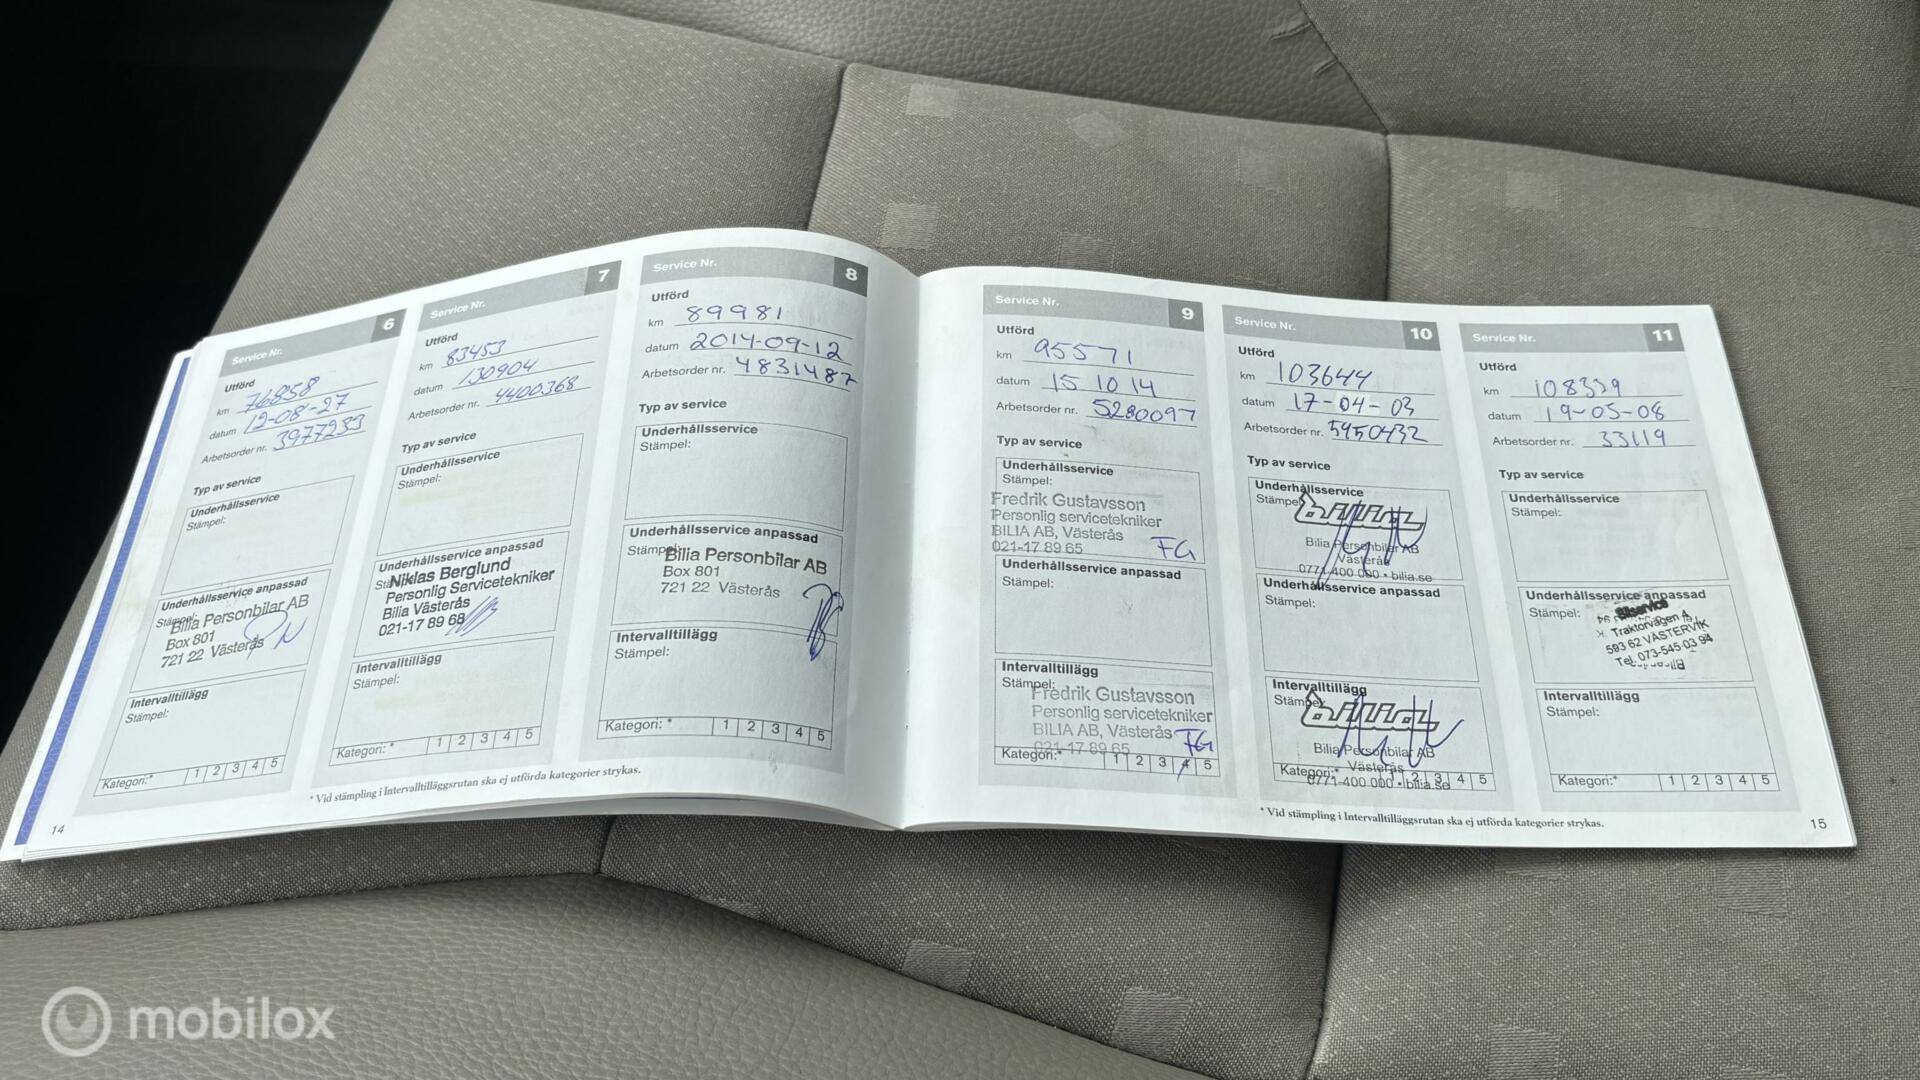 Service Nr. 6
Utförd
km 76858
datum 12-08-27
Arbetsorder nr. 3977233
Typ av service
Underhållsservice
Stämpel:
Underhållsservice anpassad
Stämpel:
Bilia Personbilar AB
Box 801
721 22 Västerås
Intervalltillägg
Stämpel:
Kategori:* 1 2 3 4 5
Service Nr. 7
Utförd
km 83453
datum 130904
Arbetsorder nr. 4400368
Typ av service
Underhållsservice
Stämpel:
Underhållsservice anpassad
Stämpel:
Niklas Berglund
Personlig Servicetekniker
Bilia Västerås
021-17 89 68
Intervalltillägg
Stämpel:
Kategori: * 1 2 3 4 5
Service Nr. 8
Utförd
km 89981
datum 2014-09-12
Arbetsorder nr. 4831487
Typ av service
Underhållsservice
Stämpel:
Underhållsservice anpassad
Stämpel:
Bilia Personbilar AB
Box 801
721 22 Västerås
Intervalltillägg
Stämpel:
Kategori: * 1 2 3 4 5
* Vid stämpling i Intervalltilläggsrutan ska ej utförda kategorier strykas.
14
Service Nr. 9
Utförd
km 95571
datum 15 10 14
Arbetsorder nr. 5280097
Typ av service
Underhållsservice
Stämpel:
Fredrik Gustavsson
Personlig servicetekniker
BILIA AB, Västerås
021-17 89 65 FG
Underhållsservice anpassad
Stämpel:
Intervalltillägg
Stämpel:
Fredrik Gustavsson
Personlig servicetekniker
BILIA AB, Västerås FG
021-17 89 65
Kategori:* 1 2 3 4 5
Service Nr. 10
Utförd
km 103644
datum 17-04-03
Arbetsorder nr. 5950432
Typ av service
Underhållsservice
Stämpel:
bilia
Bilia Personbilar AB
Västerås
0771-400 000 • bilia.se
Underhållsservice anpassad
Stämpel:
Intervalltillägg
Stämpel:
bilia
Bilia Personbilar AB
Västerås
0771-400 000 • bilia.se
Kategori:* 1 2 3 4 5
Service Nr. 11
Utförd
km 108339
datum 19-05-08
Arbetsorder nr. 33119
Typ av service
Underhållsservice
Stämpel:
Underhållsservice anpassad
Stämpel:
Traktorvägen 4
593 62 VÄSTERVIK
Tel. 073-545 03 94
Intervalltillägg
Stämpel:
Kategori:* 1 2 3 4 5
* Vid stämpling i Intervalltilläggsrutan ska ej utförda kategorier strykas.
15
mobilox